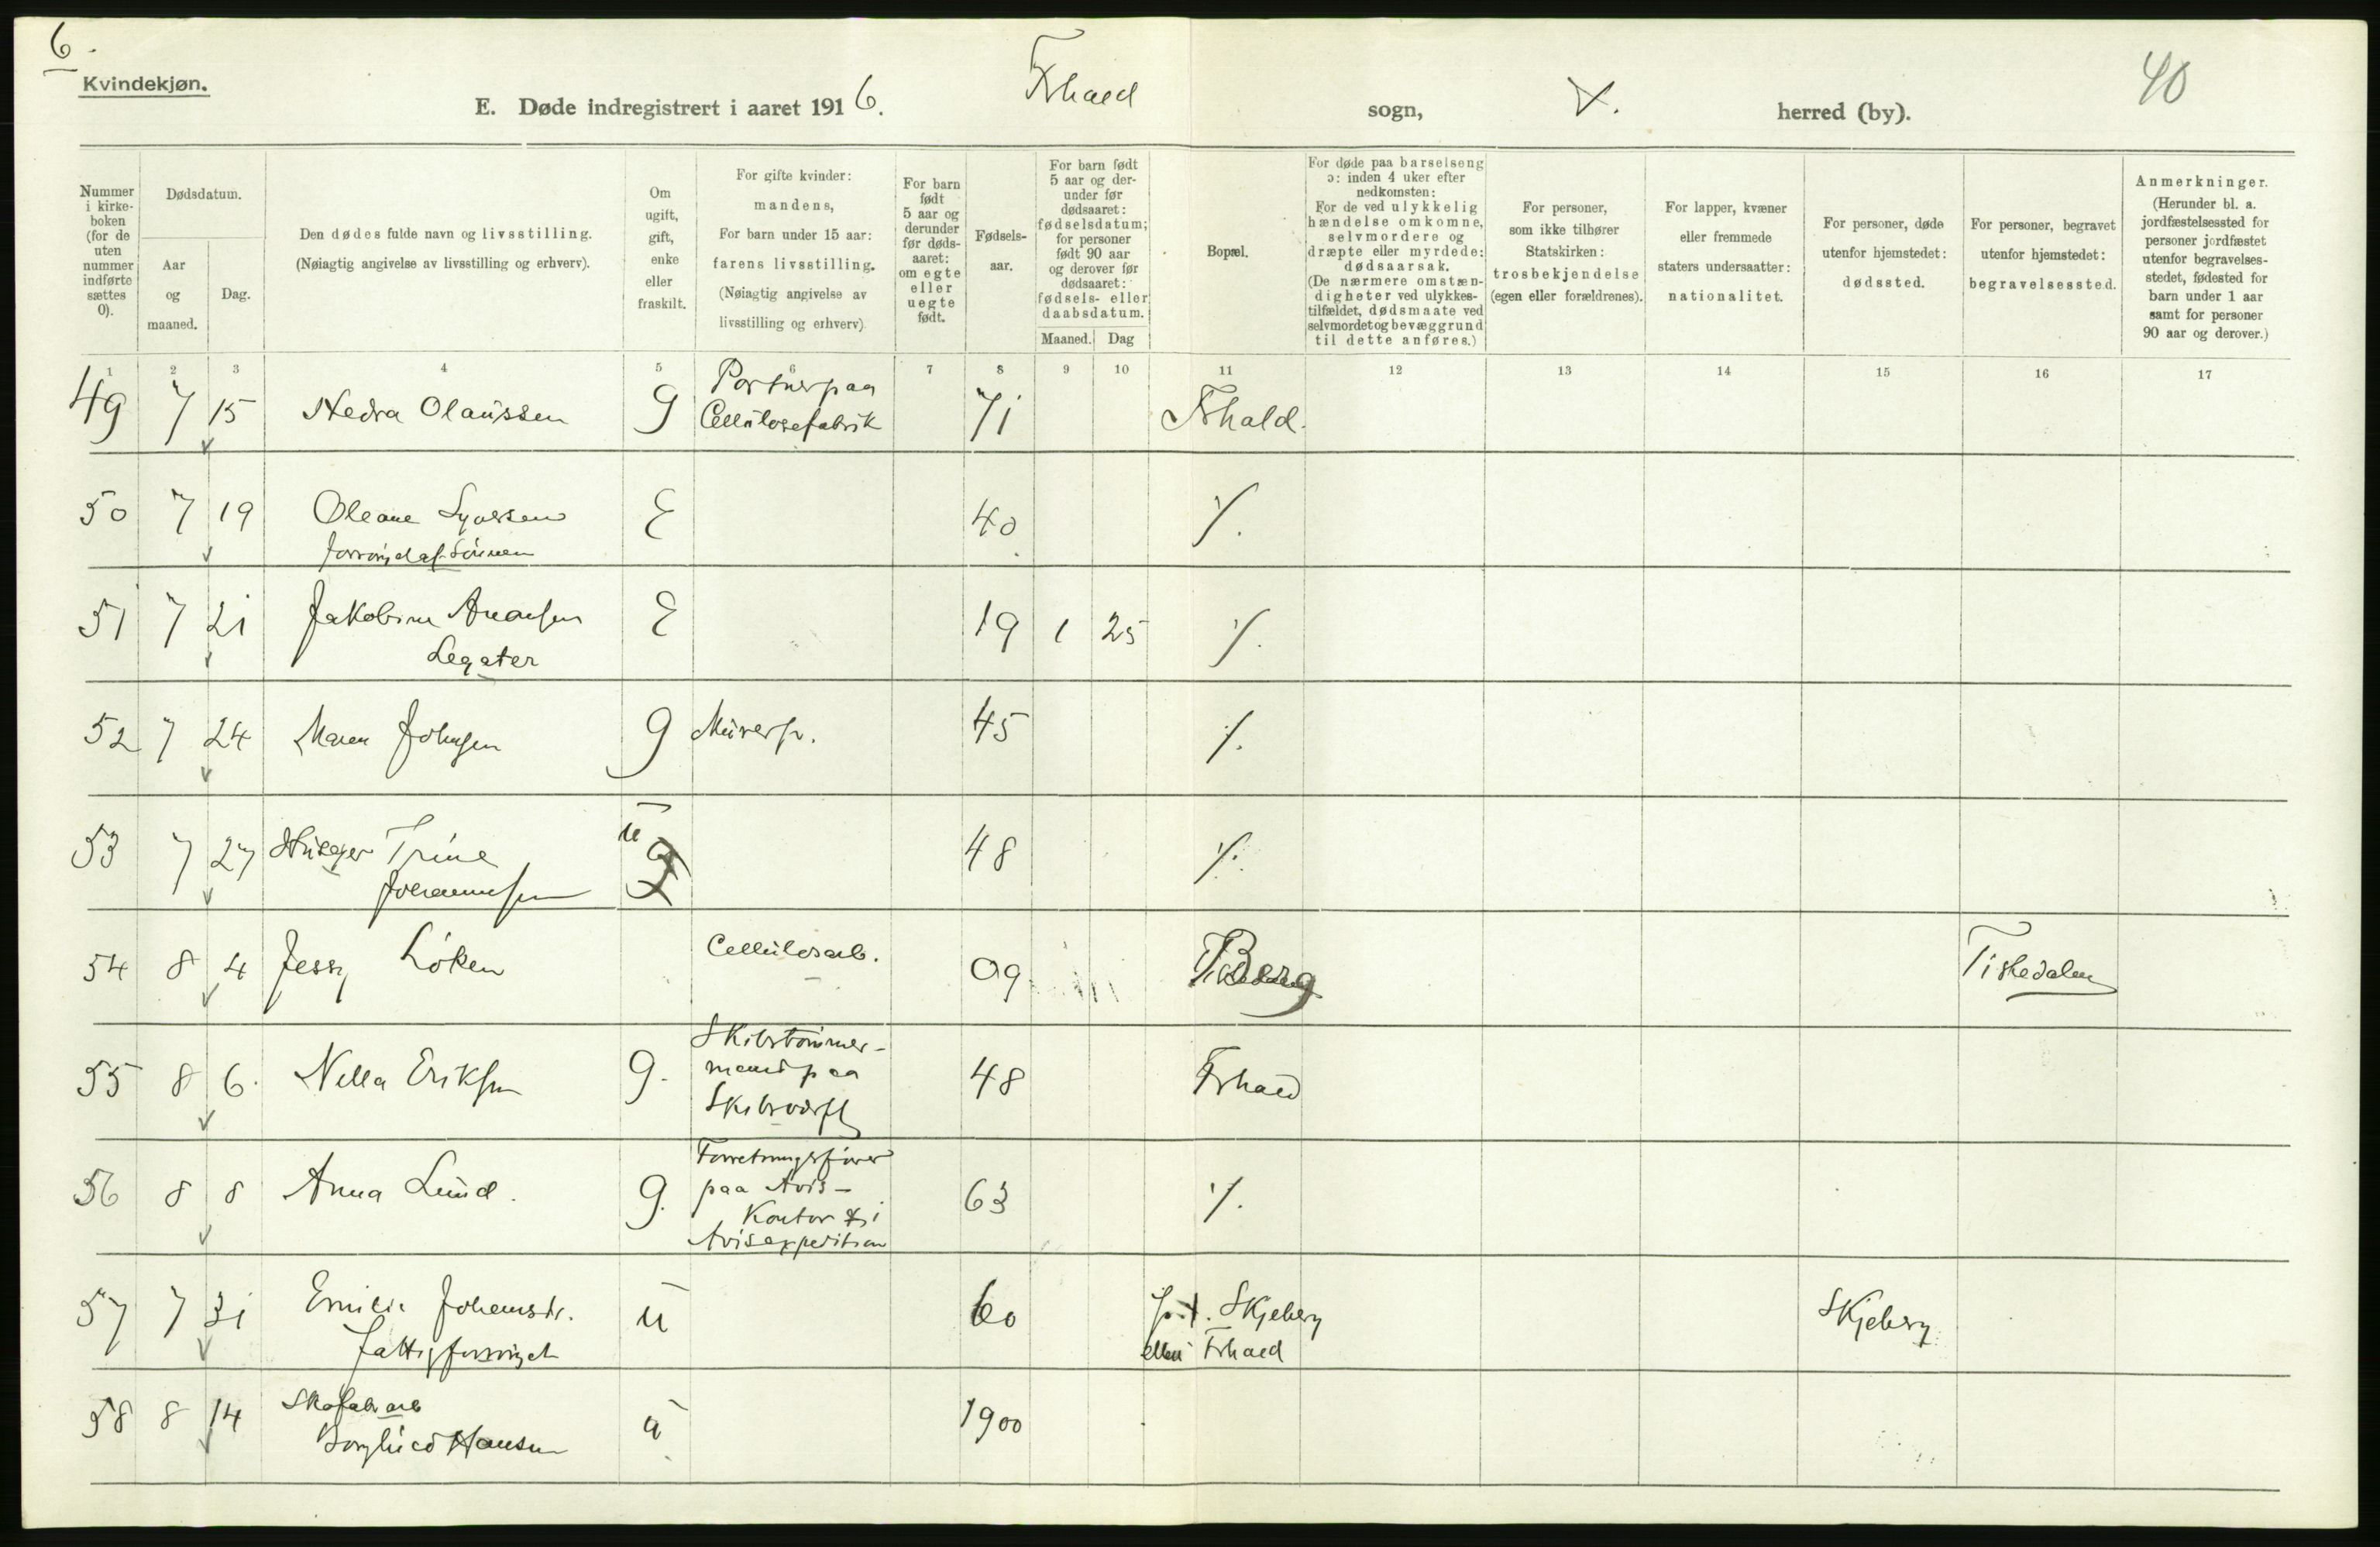 6.
Kvindekjøn.
E. Døde indregistrert i aaret 1916. Frhald sogn, herred (by). 40
Nummer i kirke-boken (for de uten nummer indførte sættes 0).
Dødsdatum.
Aar og maaned.
Dag.
Den dødes fulde navn og livsstilling.
(Nøiagtig angivelse av livsstilling og erhverv).
Om ugift, gift, enke eller fraskilt.
For gifte kvinder: mandens,
For barn under 15 aar: farens livsstilling.
(Nøiagtig angivelse av livsstilling og erhverv)
For barn født 5 aar og derunder før døds-aaret: om egte eller uegte født.
Fødsels-aar.
For barn født 5 aar og der-under før dødsaaret: fødselsdatum; for personer født 90 aar og derover før dødsaaret: fødsels- eller daabsdatum.
Maaned. Dag
Bopæl.
For døde paa barselseng ɔ: inden 4 uker efter nedkomsten:
For de ved ulykkelig hændelse omkomne, selvmordere og dræpte eller myrdede: dødsaarsak.
(De nærmere omstæn-digheter ved ulykkes-tilfældet, dødsmaate ved selvmordet og bevæggrund til dette anføres.)
For personer, som ikke tilhører Statskirken: trosbekjendelse (egen eller forældrenes).
For lapper, kvæner eller fremmede staters undersaatter: nationalitet.
For personer, døde utenfor hjemstedet: dødssted.
For personer, begravet utenfor hjemstedet: begravelsessted.
Anmerkninger.
(Herunder bl. a. jordfæstelsessted for personer jordfæstet utenfor begravelses-stedet, fødested for barn under 1 aar samt for personer 90 aar og derover.)
1 2 3 4 5 6 7 8 9 10 11 12 13 14 15 16 17
49 7 15 Hedva Olaussen g Portner paa Cellulosefabrik 71 Frhald.
50 7 19 Oleane Syversen E 40 ٪.
forsørget af Sönnen
51 7 21 Jakobine E 19 1 25 ٪.
Legater
52 7 24 Maren Johnsen g Murersv. 45 ٪.
53 7 27 Trine Johannesen u 48 ٪.
54 8 4 Jessy Löken Cellulosarb. 09 Berg Tistedalen
55 8 6. Nella Eriksen g. Skibstømmer-mand paa Skibsværft 48 Frhald
56 8 8 Anna Lund. g. Forretningsfører paa Avis-Kontor & i Avisexpedition 63 ٪.
57 7 31 Emilie Johansdr. u 60 p.t. Skjeberg Skjeberg
fattigforsørget ellers Frhald
58 8 14 Skofabr arb u 1900
Borghild Hansen